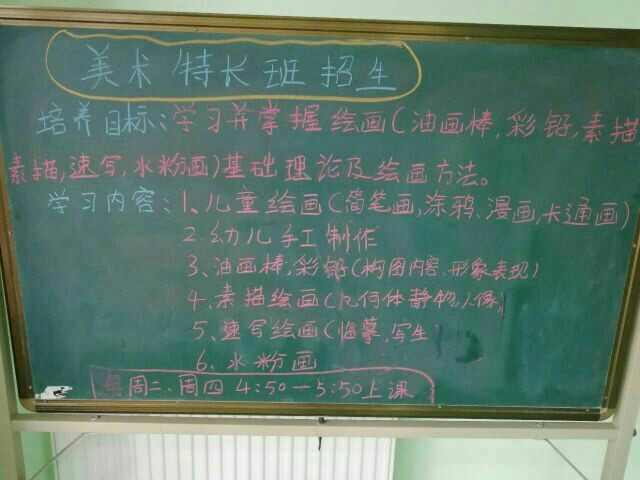 美术特长班招生
培养目标:学习并掌握绘画(油画棒,彩铅,素描
素描,速写,水粉画)基础理论及绘画方法。
学习内容:1、儿童绘画(简笔画,涂鸦、漫画,卡通画)
2、幼儿手工制作
3、油画棒,彩铅(构图内容、形象表现)
4、素描绘画(几何体静物,人像)
5、速写绘画(临摹,写生
6、水粉画
每周二、周四 4:50—5:50上课